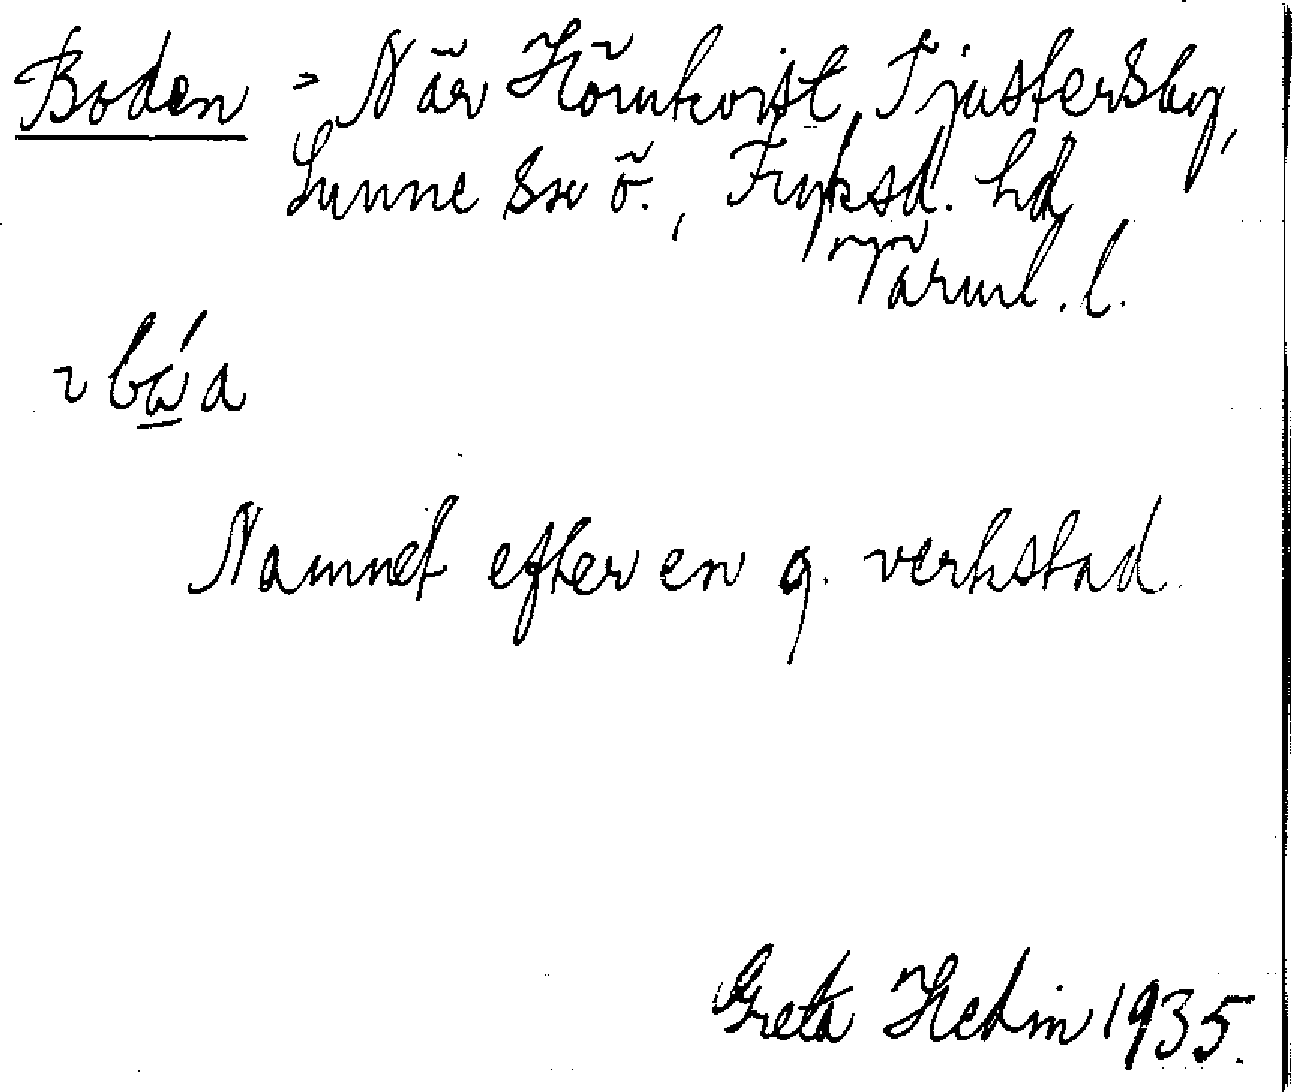 Boden = När Hörnkvist, Tjustersby,
Sunne sn ö., Fryksd. hd
Värml. l.
²bǻa
Namnet efter en g. verkstad.
Greta Hedin 1935.